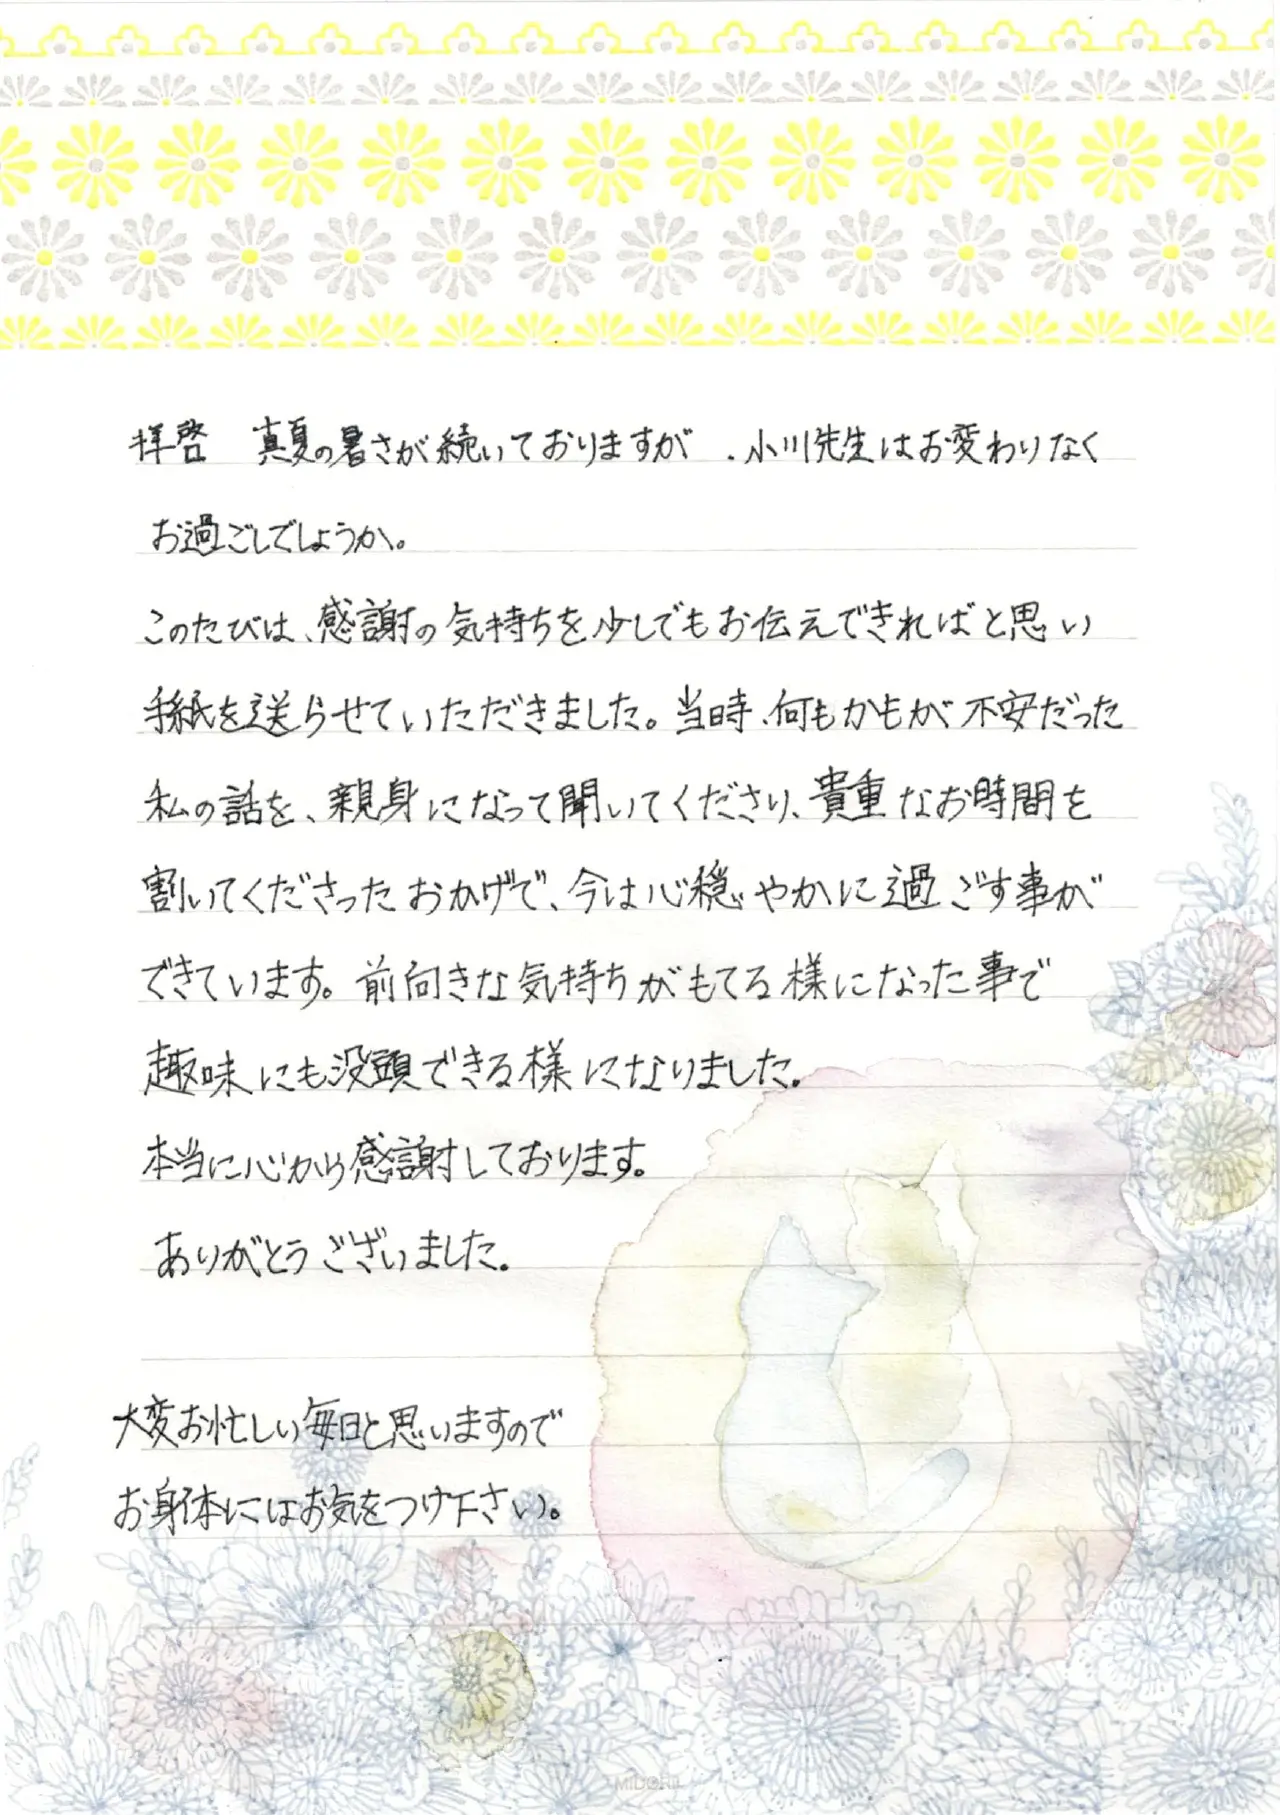 拝啓　真夏の暑さが続いておりますが、小川先生はお変わりなく
お過ごしでしょうか。
このたびは、感謝の気持ちを少しでもお伝えできればと思い
手紙を送らせていただきました。当時、何もかもが不安だった
私の話を、親身になって聞いてくださり、貴重なお時間を
割いてくださったおかげで、今は心穏やかに過ごす事が
できています。前向きな気持ちがもてる様になった事で
趣味にも没頭できる様になりました。
本当に心から感謝しております。
ありがとうございました。
大変お忙しい毎日と思いますので
お身体にはお気をつけ下さい。
MIDORI